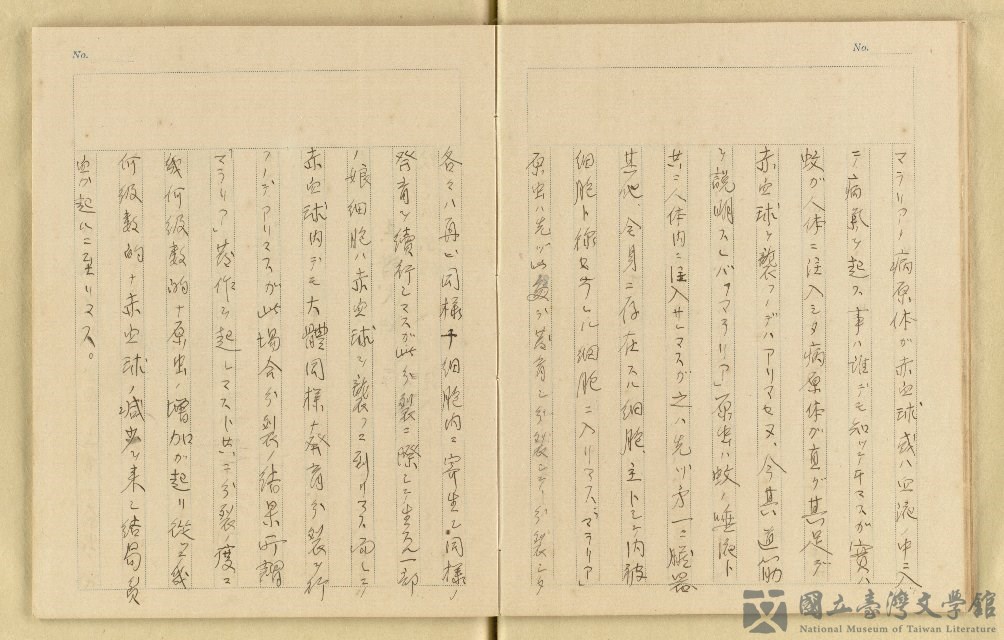 No.
マラリアノ病原体ガ赤血球或ハ血液ノ中ニ入
テ病氣ヲ起ス事ハ誰デモ知ッテヰマスガ實ハ
蚊ガ人体ニ注入シタ病原体ガ直ガ其足デ
赤血球ヲ襲フデハアリマセヌ、今其ノ道筋
ヲ説明スレバ「マラリア」原虫ハ蚊ノ唾液ト
共ニ人体内ニ注入サレマスガ之ハ先ヅ第一ニ臓器
其他、全身ニ存在スル細胞、主トシテ内被
細胞ト称セラレル細胞ニ入リマス、「マラリア」
原虫ハ先ヅ此処デ發育シ分裂シテ分裂シタ
No.
各々ハ再ビ同様ナ細胞内ニ寄生シ同様ノ
發育ヲ續行シマスガ此分裂ニ際シテ生ズル一部
ノ娘細胞ハ赤血球ヲ襲フニ到リマス而シテ
赤血球内デモ大體同様ナ發育分裂ヲ行
フノデアリマスガ此場合分裂ノ結果所謂
「マラリア」發作ヲ起シマスト共ニ分裂ノ度ニ
幾何級数的ナ原虫ノ増加ガ起リ從ッテ幾
何級数的ナ赤血球ノ減少ヲ来シ結局貧
血ガ起ルニ至リマス。
國立臺灣文學館
National Museum of Taiwan Literature